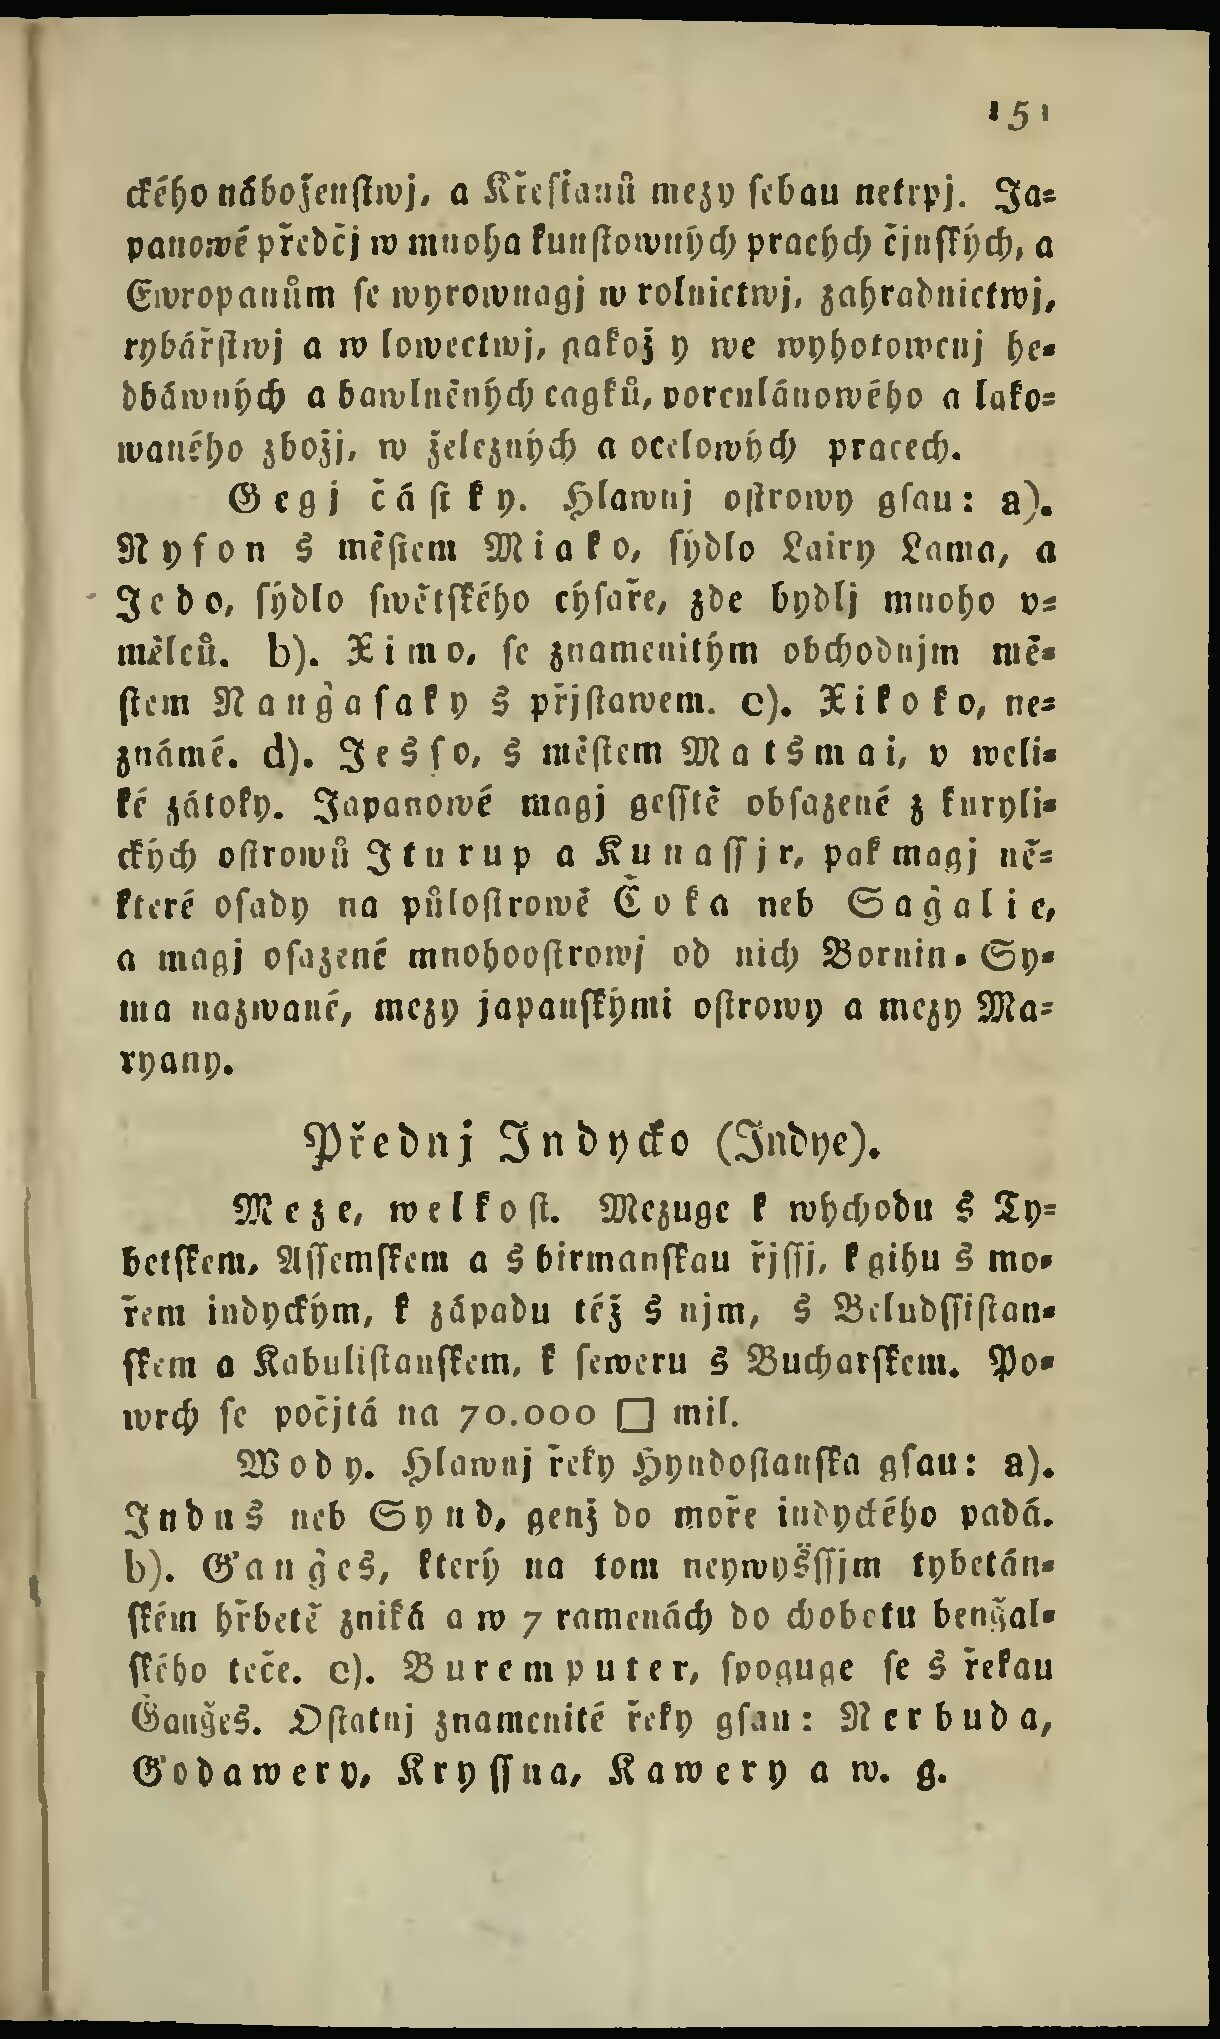 151
ckého náboženſtwj, a Křeſťanů mezy ſebau netrpj. Ja-
panowé předčj w mnoha kunſtowných prachých čjnſkých, a
Ewropanům ſe wyrownagj w rolnictwj, zahradnictwj,
rybářſtwj a w lowectwj, gakož y we wyhotowenj he-
dbáwných a bawlněných cagků, porculánowého a lako-
waného zbožj, w železných a ocelowých pracech.
Gegj čáſtky. Hlawnj oſtrowy gſau: a).
Nyfon s měſtem Miako, ſýdlo Lairy Lama, a
Jedo, ſýdlo ſwětſkého cýſaře, zde bydlj mnoho v-
mělců. b). Ximo, ſe znamenitým obchodnjm mě-
ſtem Nangaſaky s přjſtawem. c). Xikoko, ne-
známé. d). Jesſo, s měſtem Matsmai, v weli-
ké zátoky. Japanowé magj geſſtě obſazené z kuryli-
ckých oſtrowů Jturup a Kunaſſjr, pak magj ně-
které oſady na půloſtrowě Čoka neb Saǧalie,
a magj oſazené mnohooſtrowj od nich Bornin-Sy-
ma nazwané, mezy japanſkými oſtrowy a mezy Ma-
ryany.
Přednj Indycko (Indye).
Meze, welkoſt. Mezuge k wýchodu s Ty-
betſkem, Aſſemſkem a s birmanſkau řjſſj, k gihu s mo-
řem indyckým, k západu též s njm, s Beludſſiſtan-
ſkem a Kabuliſtanſkem, k ſeweru s Bucharſkem. Po-
wrch ſe počjtá na 70.000 □ mil.
Wody. Hlawnj řeky Hyndoſtanſka gſau: a).
Indus neb Synd, genž do moře indyckého padá.
b). Ganǧes, který na tom neywyšſſjm tybetán-
ſkém hřbetě zniká a w 7 ramenách do chobotu benǧal-
ſkého teče. c). Buremputer, ſpoguge ſe s řekau
Ǧanǧes. Oſtatnj znamenité řeky gſau: Nerbuda,
Godawery, Kryſſna, Kawery a w. g.